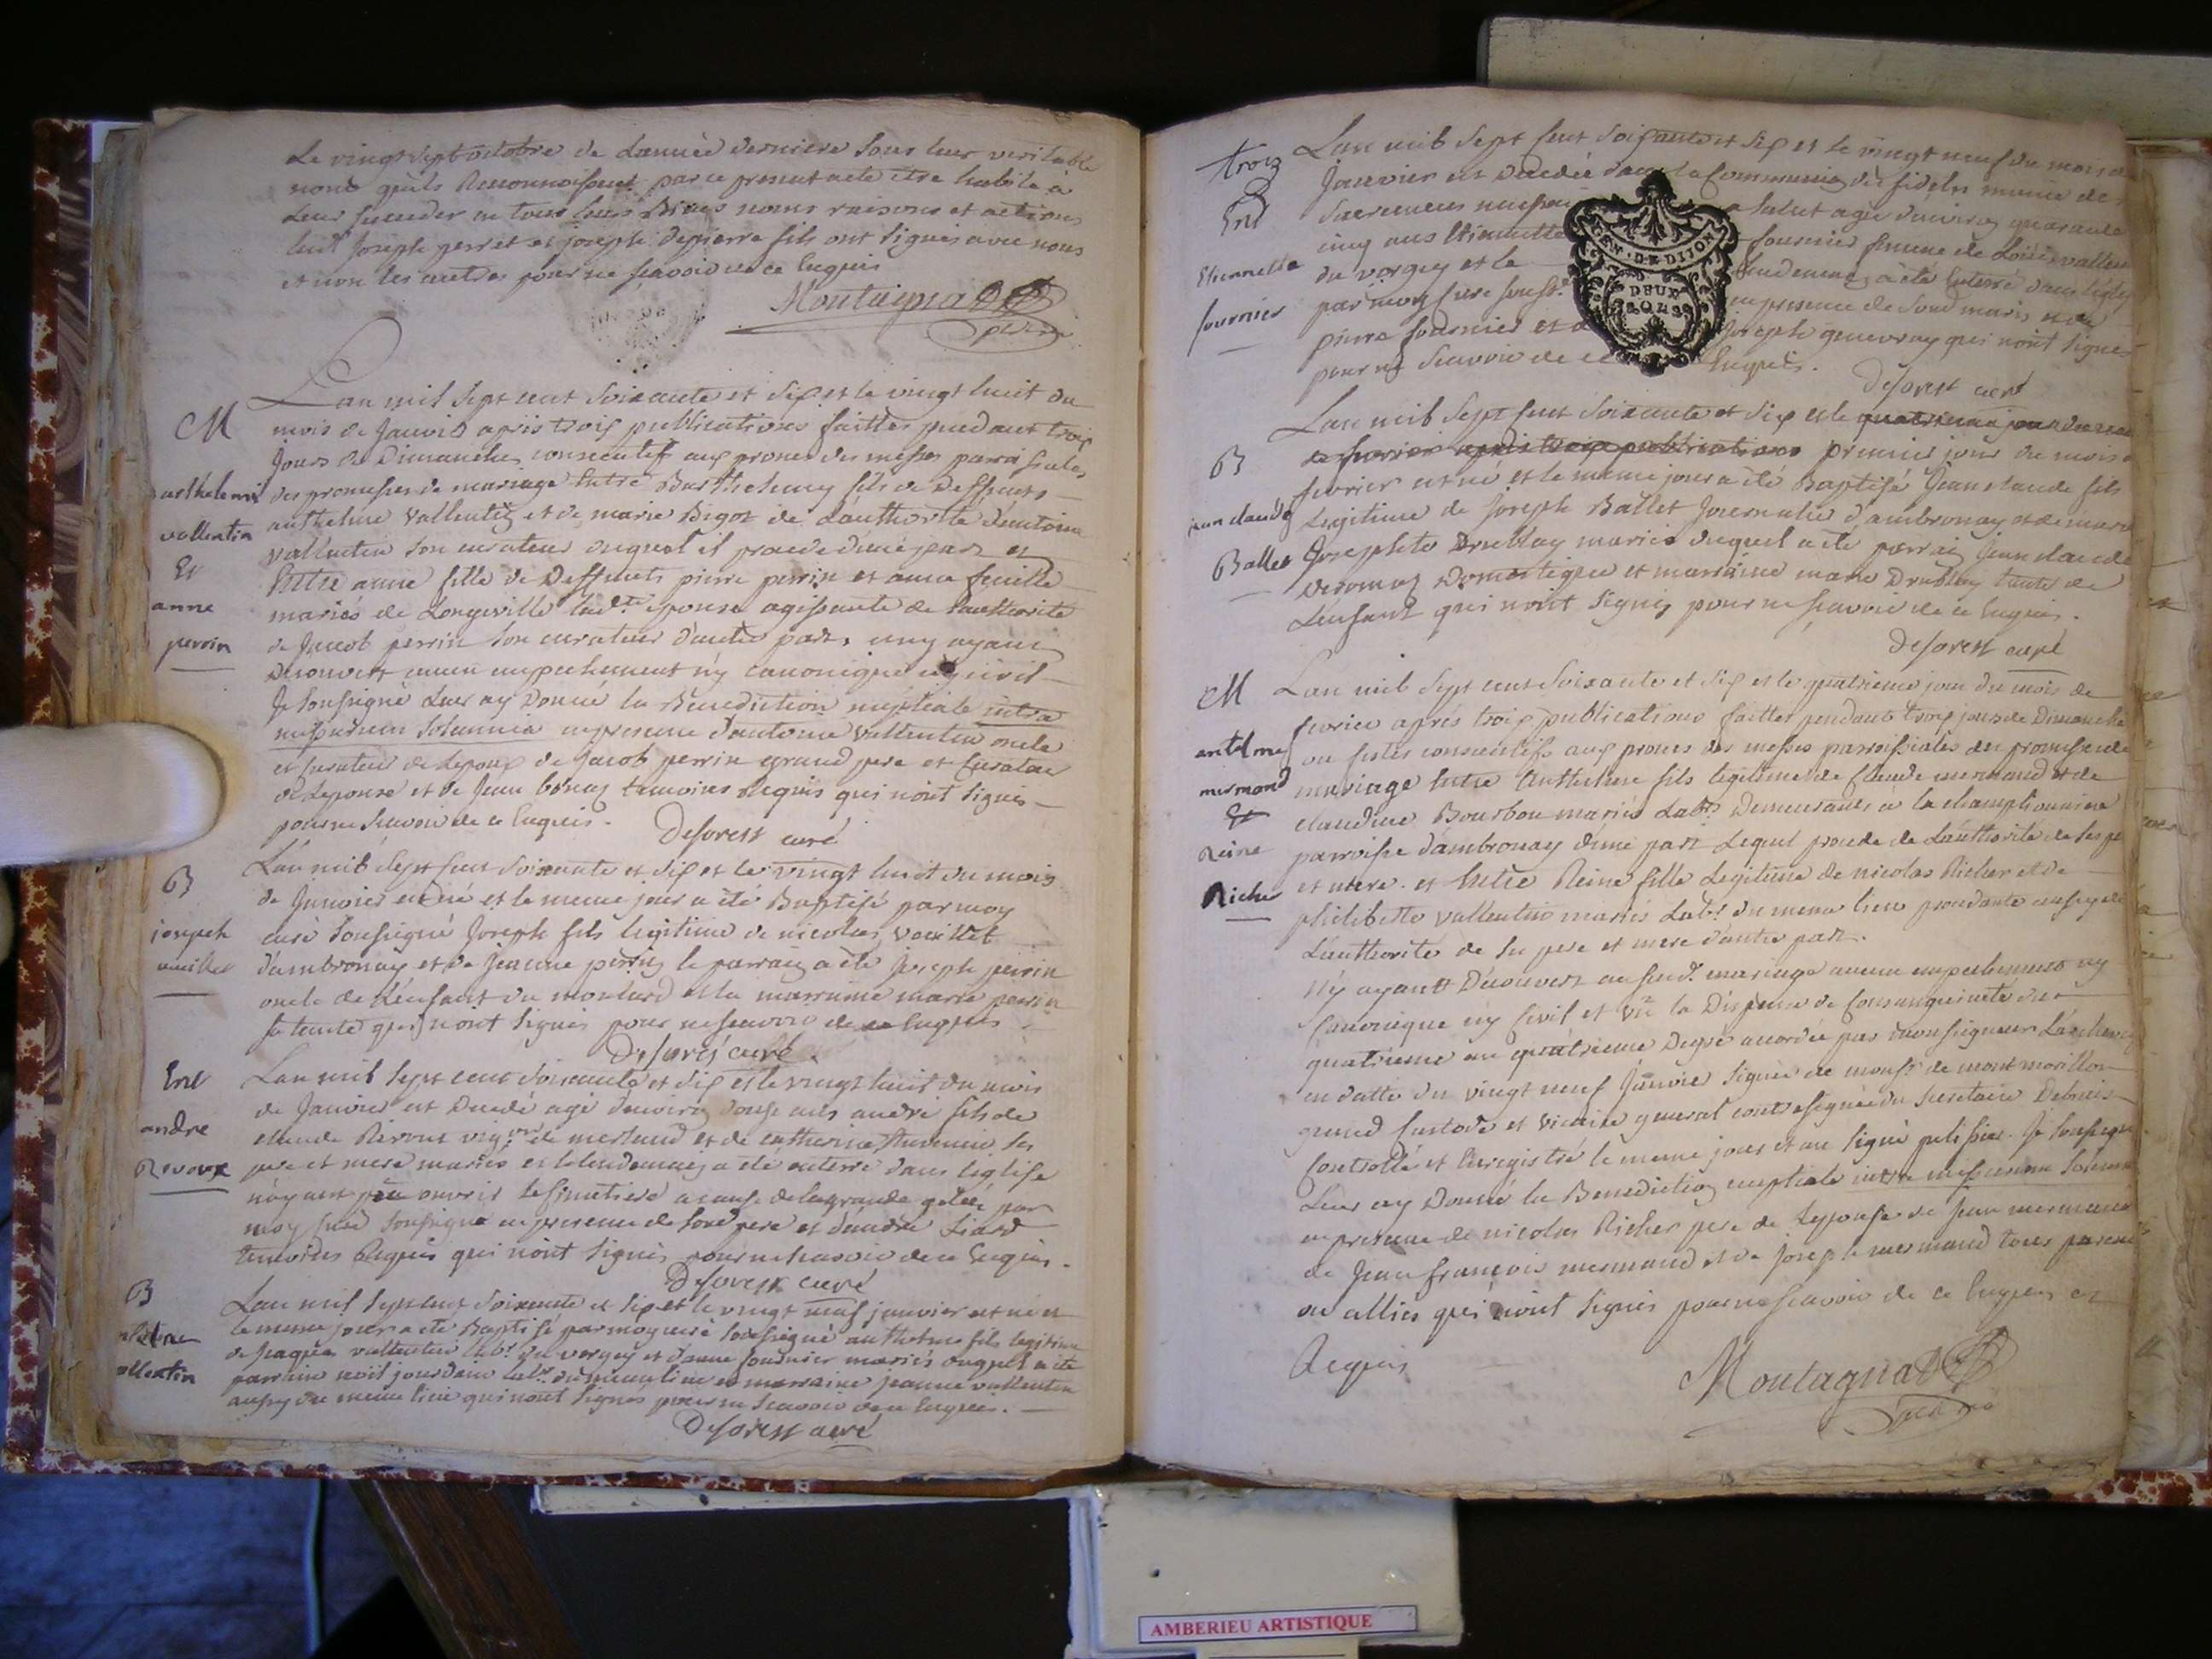 Le vingt sept octobre de Lannèe derniere sous leur veritable
nons quils Reconnoissent par ce present acte etre habile à
Leur succeder en tous leurs Biens noms raisons et actions
Joseph perret et joseph depierre fils ont signés avec nous
et non les autres pour ne sçavoir de ce Enquis
Montagnat
M
barthelemi
vallentin
Et
anne
perrin
Lan mil sept cent soixante et six et le vingt huit du
mois de Janvier après trois publications faittes pendant trois
Jours de Dimanche consecutif aux prones des messes paroissiales
des promesses de mariage Entre Barthelemy fils de Deffunts
anthelme Vallentin et de marie Bigot de Lauthorité dantoine
Vallentin son curateur duquel il procede dune part et
Entre anne fille de Deffunts pierre perrin et anne feuille
mariés de Longeville lad.te epouse agissante de Lauthorité
de Jacob perrin son curateur d'autre part, ny ayant
Decouvert aucun empechement ny canonique ny civil
Je soussigné Leur ay Donné la Benediction nuptiale intra
missarum solemnia en presence dantoine Vallentin oncle
et curateur de Lepoux de Jacob perrin grand pere et Curateur
de Lepouse et de Jean temoins Requis qui n'ont signés
pour ne scavoir de ce Enquis.
Deforest curé
B
joseph
vuillet
Lan mil sept cent soixante et six et le vingt huit du mois
de Janvier est né et le meme jour a été Baptisé par moy
curé soussigné Joseph fils legitime de nicolas Vuillet
d'ambronay et de Jeanne perrin le parrain a été Joseph perrin
oncle de L'enfant du molard et la marraine marie perrin
sa tante qui n'ont signés pour ne scavoir de ce Enquis
Deforest curé.
Ent
andre
Revoux
Lan mil sept cent soixante et six et le vingt huit du mois
de Janvier est Decedé agé d'environ douse ans andré fils de
claude Revoux vig.on de merland et de catherine ses
pere et mere mariés et le lendemain a eté enterré dans Leglise
n'ayant peu ouvrir le simetiere a cause de la grande gelée par
moy curé soussigné en presence de son pere et d'andré Liard
temoins Requis qui n'ont signés pour ne scavoir de ce Enquis.
Deforest curé
B
vallentin
Lan mil sept cent soixante et six et le vingt neuf janvier est né et
le meme jour a eté Baptisé par moy curé soussigné anthelme fils legitime
de Jaques vallentin lab.r du vorgey et d'anne fournier mariés duquel a été
parrain noël jourdain lab.r du meme lieu et marraine jeanne vallentin
aussy du meme lieu qui n'ont signés pour ne scavoir de ce Enquis.
Deforest curé
trois
Ent
Etiennette
fournier
Lan mil sept cent soixante et six et le vingt neuf du mois de
Janvier est Decedée dans la Communion des fideles munie des
sacremens salut agée d'environ quarante
cinq ans Etiennette fournier femme de Loüis vallentin
du vorgey et le lendemain a été Enterré dans leglise
par moy curé souss.é en presence de son mari et de
pierre fournier et de Joseph genevray qui n'ont signés
pour ne scavoir de ce Enquis.
Deforest curé
B
jean claude
Ballet
Lan mil sept cent soixante et six et le quatrieme jour du mois
de fevrier après trois publications premier jour du mois de
fevrier est né et le meme jour a été Baptisé Jean claude fils
Legitime de Joseph Ballet Journalier d'ambronay et de marie
Josephte Drublay mariés duquel a été parrain jean claude
Domestique et marraine marie Drublay tante de
L'enfant qui n'ont signés pour ne sçavoir de ce Enquis.
Deforest curé
M
antelme
mermand
Et
Reine
Richer
Lan mil sept cent soixante et six et le quatrieme jour du mois de
fevrier après trois publications faittes pendant trois jours de Dimanche
ou festes consecutifs aux prones des messes parroissiales des promesses de
mariage Entre Anthelme fils legitime de Claude mermand et de
claudine Bourbon mariés Lab.rs Demeurants à la championnière
parroisse d'ambronay d'une part Lequel procede de Lauthorité de ses pere
et mere. et Entre Reine fille Legitime de nicolas Richer et de
philiberte vallentin mariés Lab.rs du meme lieu procedante aussy de
L'authorité de ses pere et mere d'autre part.
N'y ayant Découvert au sud.t mariage aucun empechement ny
Canonique ny Civil et vû la Dispense de Consanguinité du
quatrieme au quatrieme Degré accordée par monseigneur L'archeveque
en datte du vingt neuf Janvier signée de mons.r de mont morillon
grand Custode et vicaire general contresignée du secretaire Debrais
Controllée et Enregistrée le meme jour et an signé pelissier. Je soussigné
Leur ay Donné la Benediction nuptiale intra missarum solemnia
en presence de nicolas Richer pere de Lepouse de Jean mermand
de Jean françois mermand et de joseph mermand tous parents
ou alliés qui n'ont signés pour ne scavoir de ce Enquis et
Requis
Montagnat
GEN. DE DIJON
DEUX
SOLS
AMBERIEU ARTISTIQUE